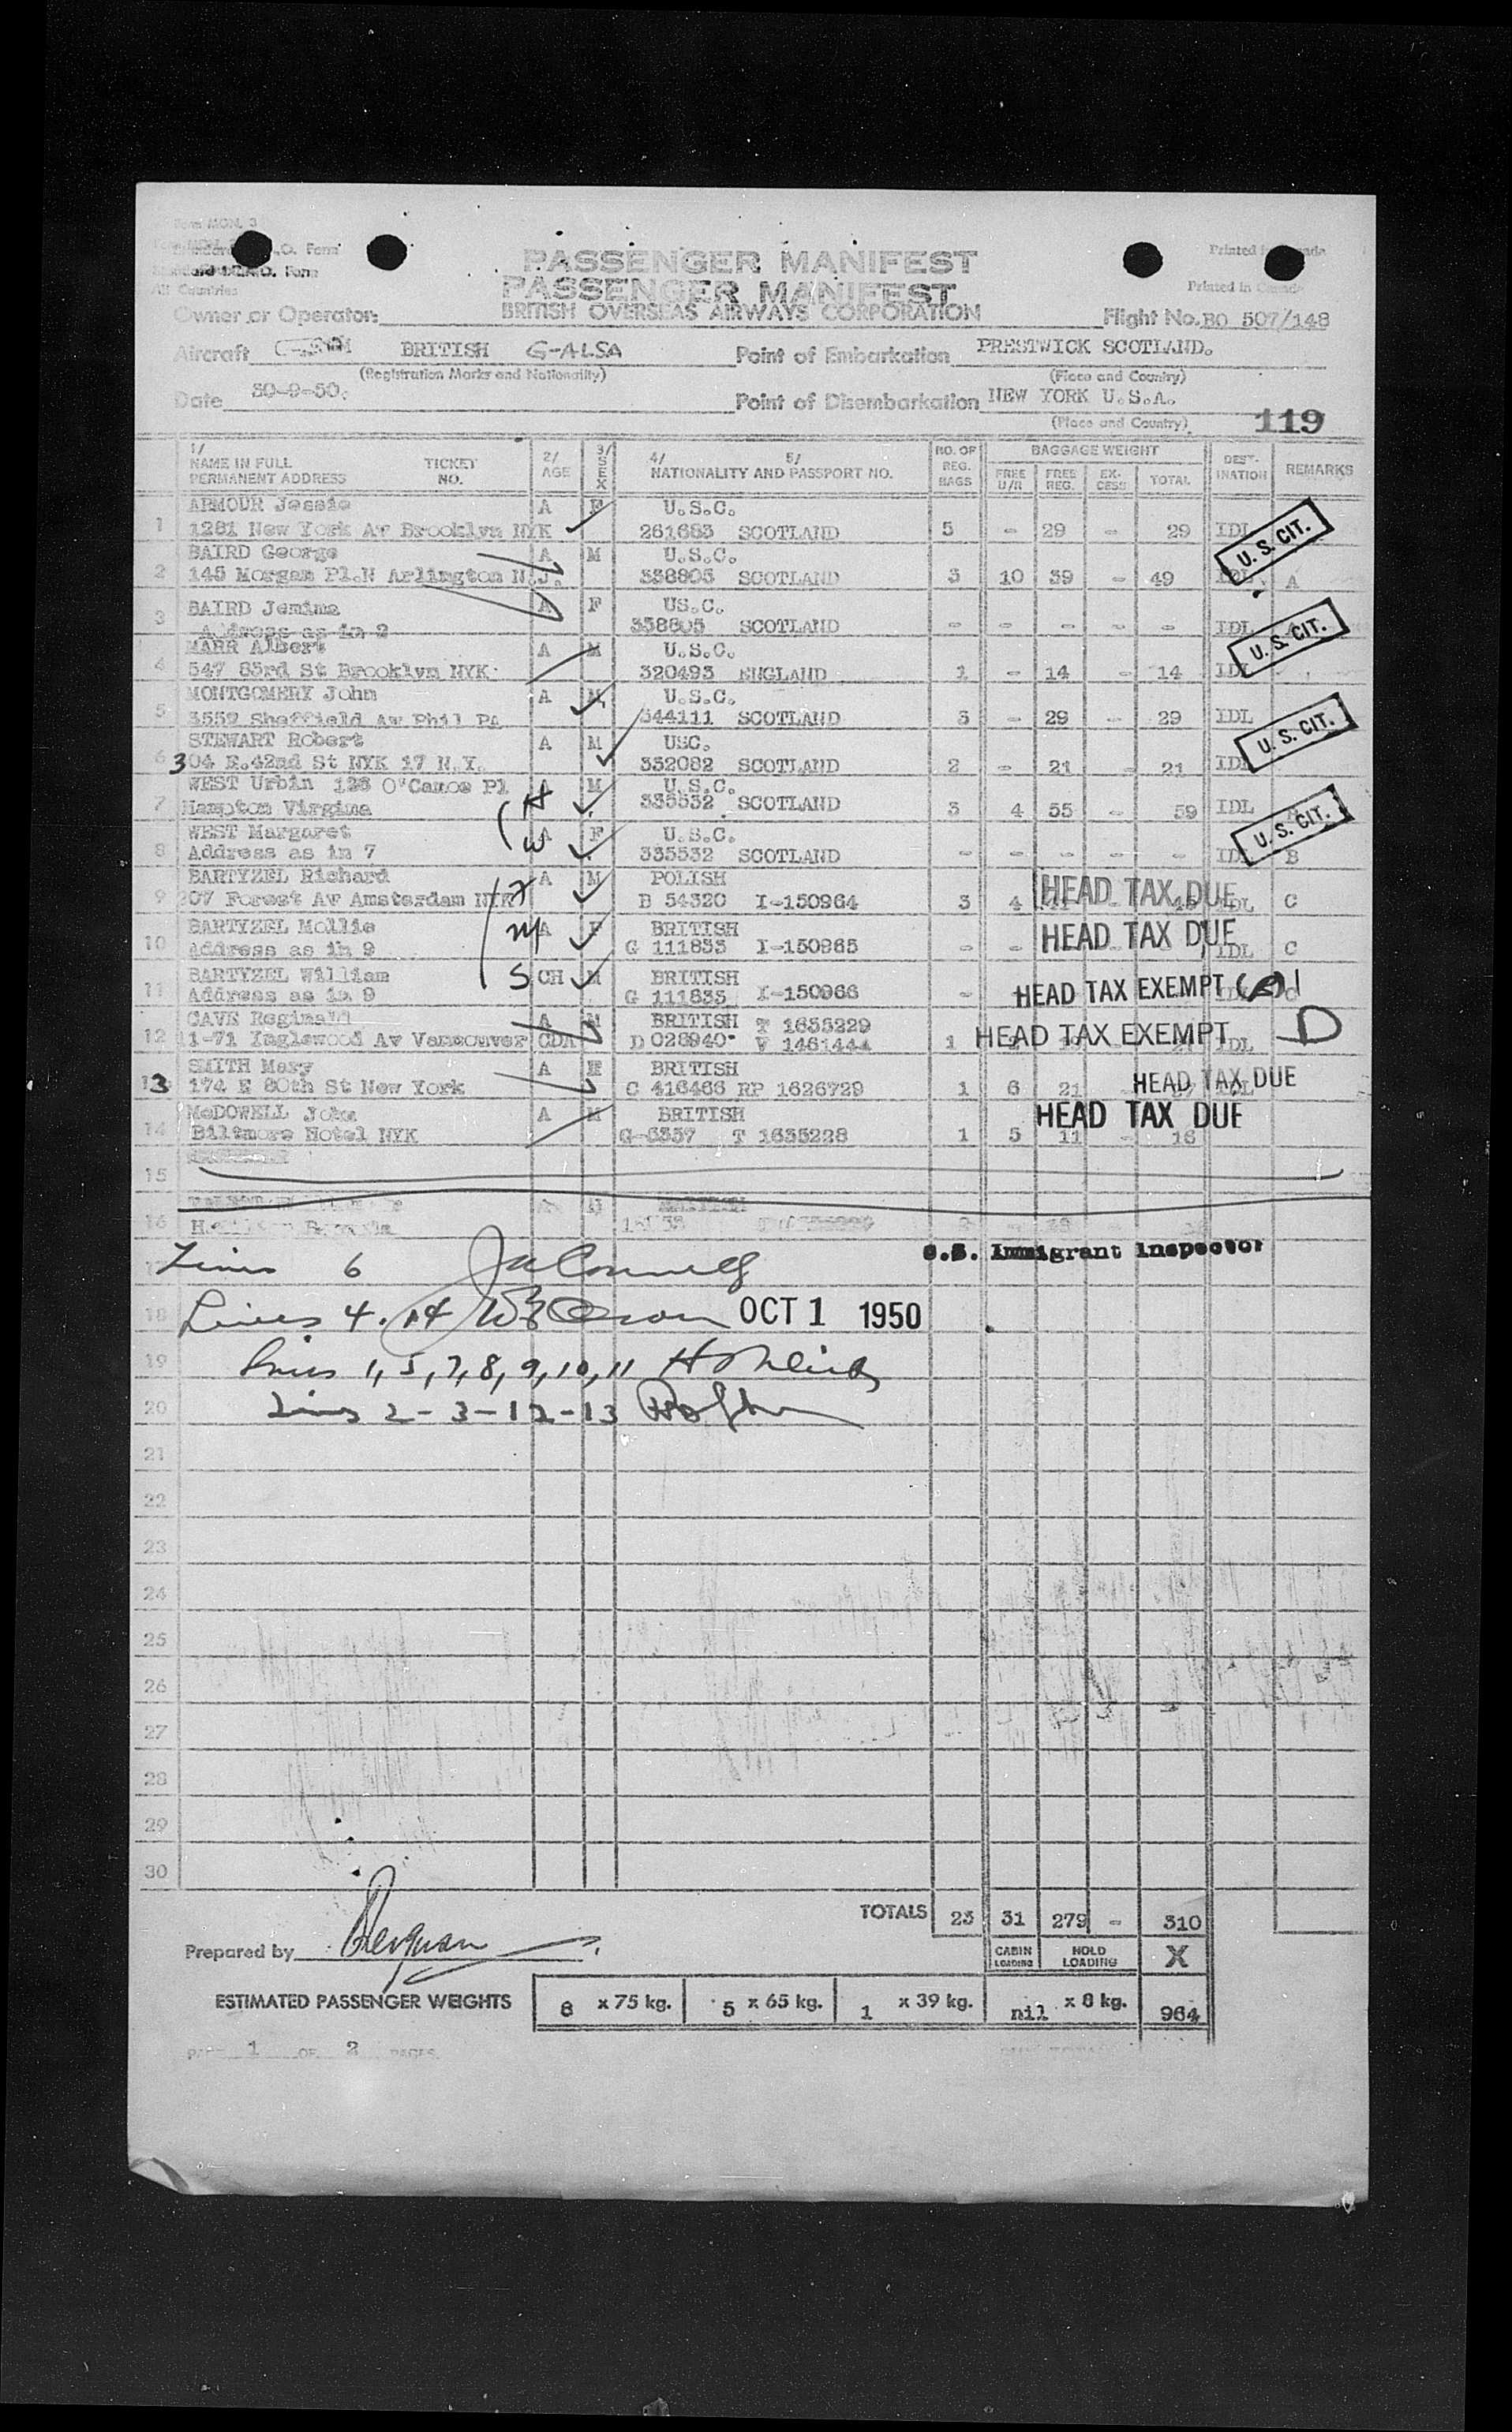 Form MCN. 3
Standard I.C.A.O. Form
All Countries
Printed in Canada
PASSENGER MANIFEST
PASSENGER MANIFEST
Printed in Canada
Owner or Operator: BRITISH OVERSEAS AIRWAYS CORPORATION Flight No. BO 507/148
Aircraft BRITISH G-ALSA Point of Embarkation PRESTWICK SCOTLAND.
(Registration Marks and Nationality) (Place and Country)
Date 30-9-50. Point of Disembarkation NEW YORK U.S.A.
(Place and Country) 119
1/ NAME IN FULL PERMANENT ADDRESS TICKET NO. 2/ AGE 3/ SEX 4/ 5/ NATIONALITY AND PASSPORT NO. NO. OF REG. BAGS BAGGAGE WEIGHT FREE U/R FREE REG. EX-CESS TOTAL DEST-INATION REMARKS
ARMOUR Jessie A F U.S.C.
1 1281 New York Av Brooklyn NYK 261683 SCOTLAND 5 - 29 29 IDL U.S. CIT.
BAIRD George A M U.S.C.
2 145 Morgan Pl.N Arlington N.J. 338805 SCOTLAND 3 10 39 - 49 IDL A
BAIRD Jemima A F US.C.
3 Address as in 2 338805 SCOTLAND - - - - - IDL U.S. CIT.
MARR Albert A M U.S.C.
4 547 83rd St Brooklyn NYK 320493 ENGLAND 1 - 14 - 14 IDL
MONTGOMERY John A M U.S.C.
5 3552 Sheffield Av Phil PA 344111 SCOTLAND 3 - 29 - 29 IDL U.S. CIT.
STEWART Robert A M USC.
6 304 E.42nd St NYK 17 N.Y. 332082 SCOTLAND 2 - 21 - 21 IDL
WEST Urbin 126 O'Canoe Pl H A M U.S.C.
7 Hampton Virgina 335532 SCOTLAND 3 4 55 - 59 IDL A U.S. CIT.
WEST Margaret W A F U.S.C.
8 Address as in 7 335532 SCOTLAND - - - - - IDL B
BARTYZEL Richard A M POLISH
9 207 Forest Av Amsterdam NYK B 54320 I-150964 3 4 HEAD TAX DUE IDL C
BARTYZEL Mollie A F BRITISH
10 Address as in 9 G 111835 I-150965 - - HEAD TAX DUE IDL C
BARTYZEL William S CH M BRITISH
11 Address as in 9 G 111835 I-150966 - HEAD TAX EXEMPT C
CAVE Reginald A M BRITISH T 1635229
12 11-71 Inglewood Av Vancouver CDA D 028940 V 1461444 1 HEAD TAX EXEMPT IDL D
SMITH Mary A F BRITISH
13 174 E 80th St New York C 416466 RP 1626729 1 6 21 HEAD TAX DUE
McDOWELL John A M BRITISH HEAD TAX DUE
14 Biltmore Hotel NYK G-6337 T 1635228 1 5 11 - 16
15
16
U.S. Immigrant Inspector
Lines 6
18 Lines 4. 14 OCT 1 1950
19 Lines 1, 5, 7, 8, 9, 10, 11
20 Lines 2 - 3 - 12 - 13
21
22
23
24
25
26
27
28
29
30
TOTALS 23 31 279 - 310
Prepared by Bergman CABIN LOADING HOLD LOADING X
ESTIMATED PASSENGER WEIGHTS 8 x 75 kg. 5 x 65 kg. 1 x 39 kg. nil x 8 kg. 964
PAGE 1 OF 2 PAGES